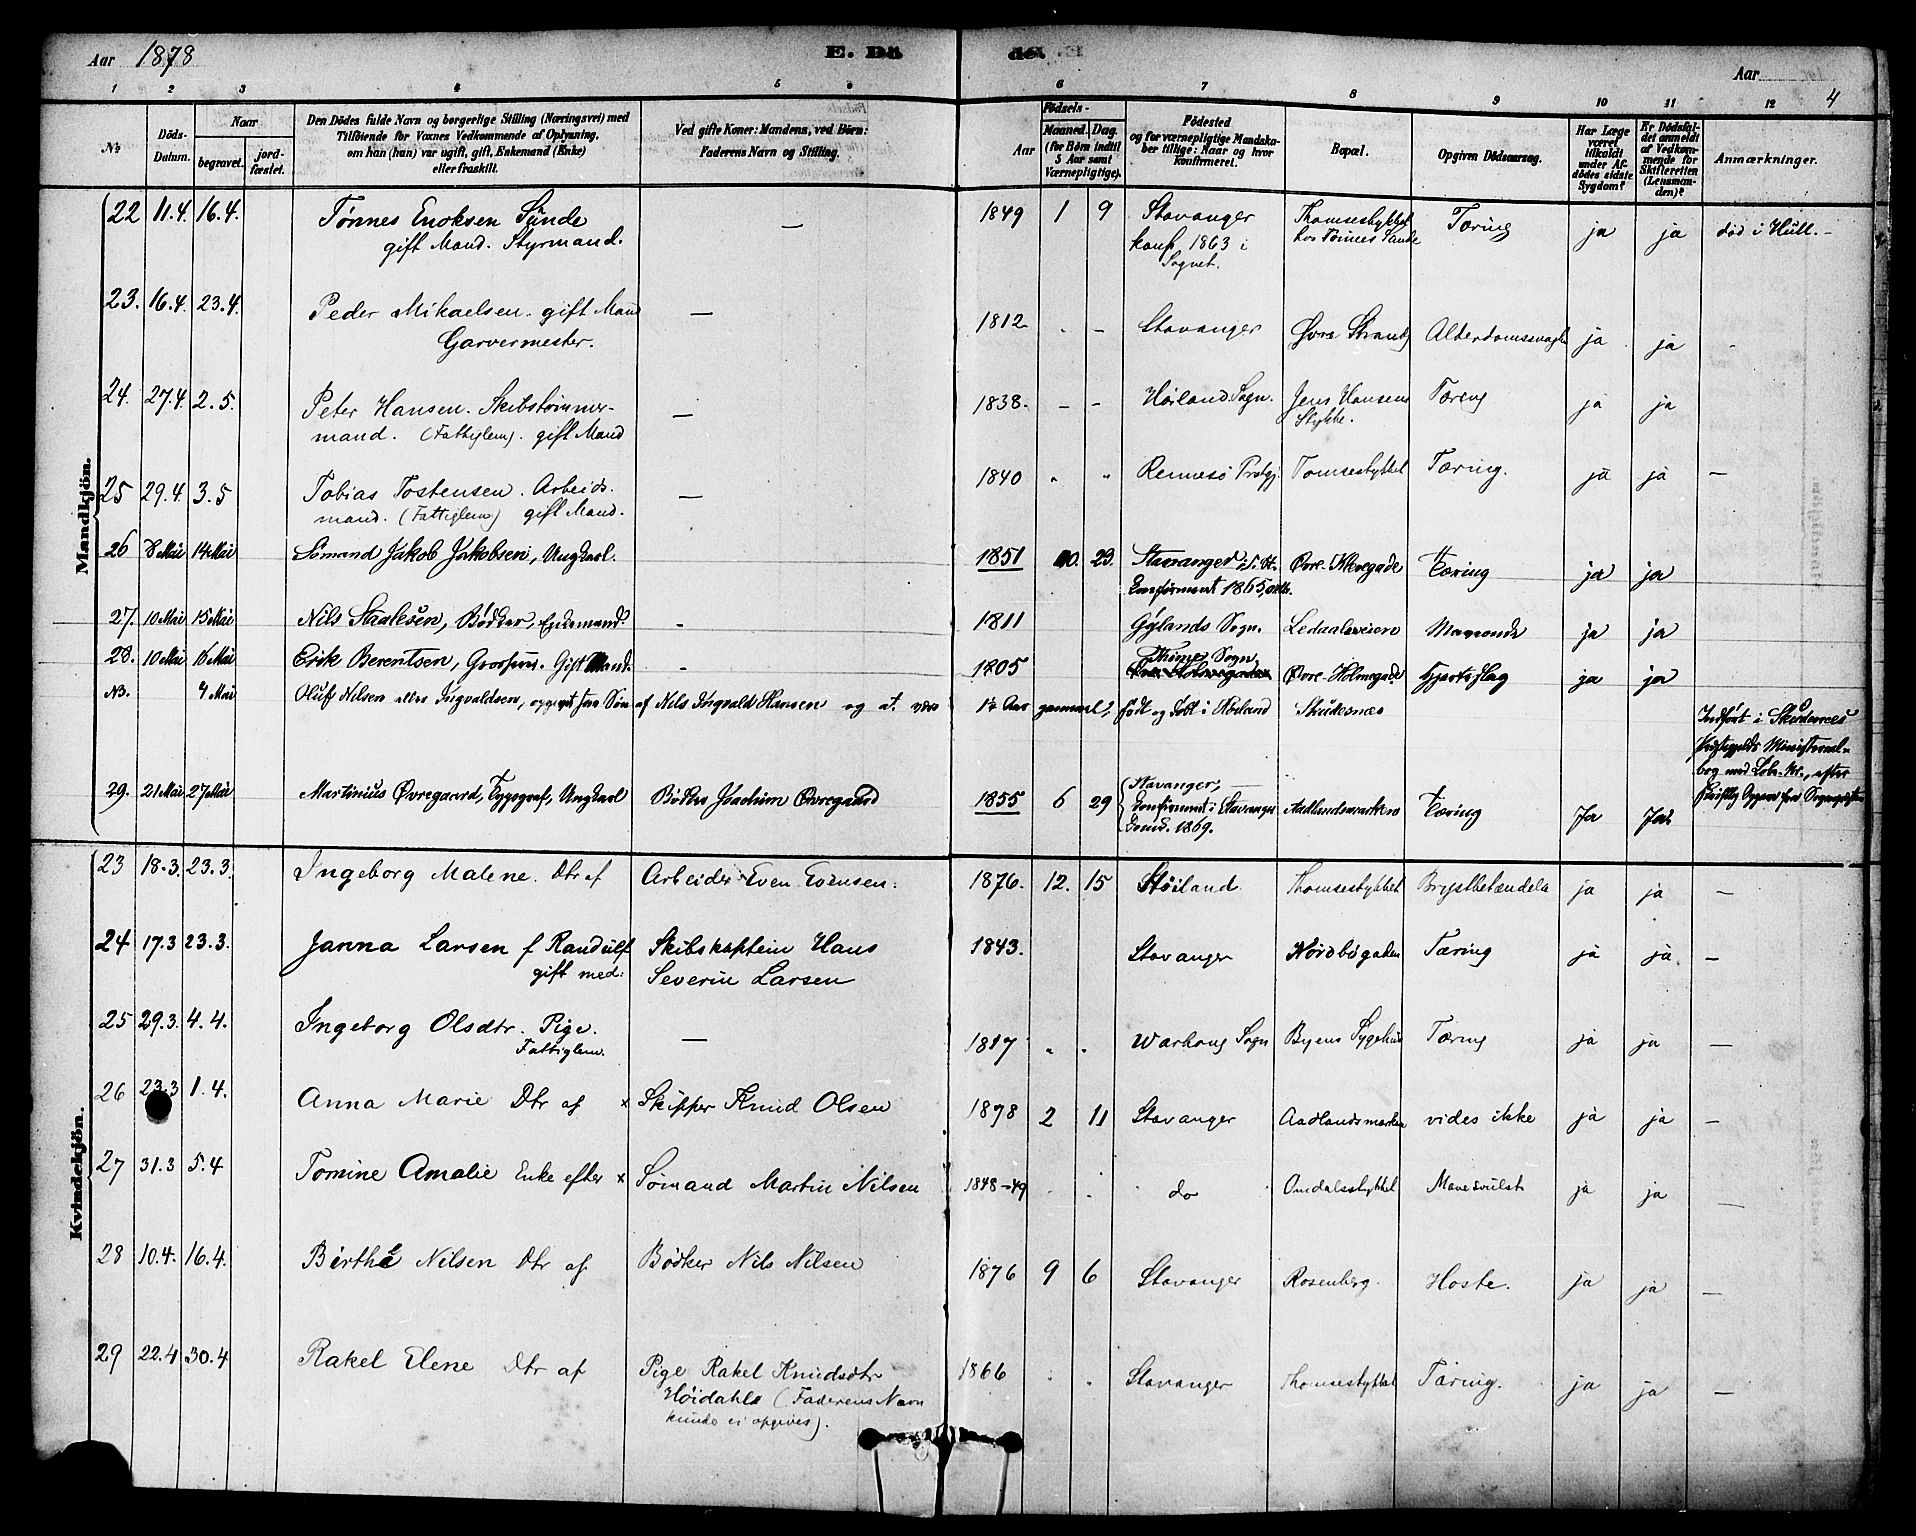 Aar 1878
E. Dö
de.
Aar
4
1 2 3 4 5 6 7 8 9 10 11 12
No
Döds-
Datum.
Naar
begravet.
jord-
fæstet.
Den Dödes fulde Navn og borgerlige Stilling (Næringsvei) med
Tilföiende for Voxnes Vedkommende af Oplysning,
om han (hun) var ugift, gift, Enkemand (Enke)
eller fraskilt.
Ved gifte Koner: Mandens, ved Börn:
Faderens Navn og Stilling.
Födsels-
Aar
Maaned. Dag.
(for Börn indtil
5 Aar samt
Værnepligtige).
Födested
og for værnepligtige Mandska-
ber tillige: Naar og hvor
konfirmeret.
Bopæl.
Opgiven Dödsaarsag.
Har Læge
været
tilkaldt
under Af-
dödes sidste
Sygdom?
Er Dödsfal-
det anmeldt
af Vedkom-
mende for
Skifteretten
(Lensman-
den)?
Anmærkninger.
Mandkjön.
22 11.4. 16.4. Tønnes Enoksen Sünde — 1849 1 9 Stavanger Thomsestykket Tæring ja ja død i Hüll. –
gift Mand. Styrmand. konf. 1863 i hos Tönnes Sunde
Sognet.
23. 16.4. 23.4. Peder Mikaelsen. gift Mand — 1812 - – Stavanger Øvre Strandg Alderdomssvaghed ja ja -
Garvermester.
24. 27.4. 2.5. Peter Hansen. Skibstømmer- — 1838. – – Høiland Sogn. Jens Hansens Tæring ja ja
mand. (Fattiglem). gift Mand Stykke.
25 29.4. 3.5 Tobias Tostensen. Arbeids. — 1840 " " Rennesö Prstgj. Tomsestykket Tæring. ja ja —
mand. (Fattiglem) gift Mand.
26 8 Mai 14 Mai Sømand Jakob Jakobsen, Ungkarl. 1851 10. 23. Stavanger Øvre Kleivegade Tæring ja ja
Confirmeret 1865, okt.
27. 10 Mai 15 Mai Nils Staalesen, Bødker, Enkemand. - 1811 Gylands Sogn. Ledaalsveien Maveonde ja ja
28. 10 Mai 16 Mai Erik Berentsen, Gift Mand. - 1805 Thime Sogn, Øvre Holmegade Hjerteslag ja ja
NB. 7 Mai Oluf Nilsen eller Ingvaldsen, opgivet for Søn af Nils Ingvald Hansen og at være 1½ Aar gammel, født og døbt i Høiland Skudesnes
Indført i Skudenes
Præstegjelds Ministerial-
bog med Løbe-Nr., efter
29. 21 Mai 27 Mai Martinius Øvregaard, Typograf, Ungkarl Bødker Joachim Øvregaard 1855 6 29 Stavanger, Aadlandsmarken Tæring Ja Ja.
Confirmeret i Stavanger
Domk. 1869.
Kvindekjön.
23 18.3. 23.3. Ingeborg Malene. Dtr af Arbeider Even Evensen. 1876. 12. 15 Høiland Thomsestykket Brystbetændelse ja ja —
24 17.3 23.3. Janna Larsen f Randulf Skibskaptein Hans 1843. Stavanger Nordbøgaden Tæring ja ja. —
gift med: Severin Larsen
25 29.3. 4.4. Ingeborg Olsdtr. Pige. — 1817 " . Warhoug Sogn Byens Sygehus Tæring ja ja —
Fattiglem.
26 23.3 1.4. Anna Marie Dtr af × Skipper Knud Olsen 1878 2 11 Stavanger Aadlandsmarken vides ikke ja ja —
27 31.3 5.4 Tomine Amalie Enke efter × Sømand Martin Nilsen 1848-49 . . do Omdalsstykket Mavesvulst ja ja —
28 10.4. 16.4. Birthe Nilsen Dtr af Bødker Nils Nilsen 1876 9 6 Stavanger Rosenberg. Hoste. ja ja —
29 22.4 30.4 Rakel Elene Dtr af Pige Rakel Knudsdtr 1866 . . Stavanger Thomsestykket Tæring. ja ja —
Höidahls (Faderens Navn
kunde ei opgives).